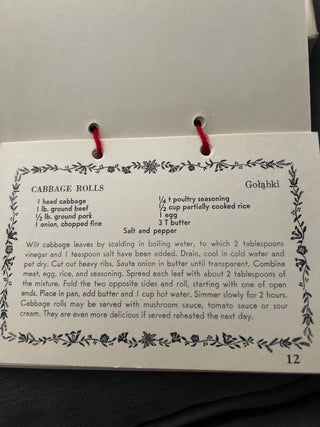 CABBAGE ROLLS Gołąbki
1 head cabbage ¼ t poultry seasoning
1 lb. ground beef ½ cup partially cooked rice
½ lb. ground pork 1 egg
1 onion, chopped fine 3 T butter
Salt and pepper
Wilt cabbage leaves by scalding in boiling water, to which 2 tablespoons
vinegar and 1 teaspoon salt have been added. Drain, cool in cold water and
pat dry. Cut out heavy ribs. Saute onion in butter until transparent. Combine
meat, egg, rice, and seasoning. Spread each leaf with about 2 tablespoons of
the mixture. Fold the two opposite sides and roll, starting with one of open
ends. Place in pan, add butter and 1 cup hot water. Simmer slowly for 2 hours.
Cabbage rolls may be served with mushroom sauce, tomato sauce or sour
cream. They are even more delicious if served reheated the next day.
12